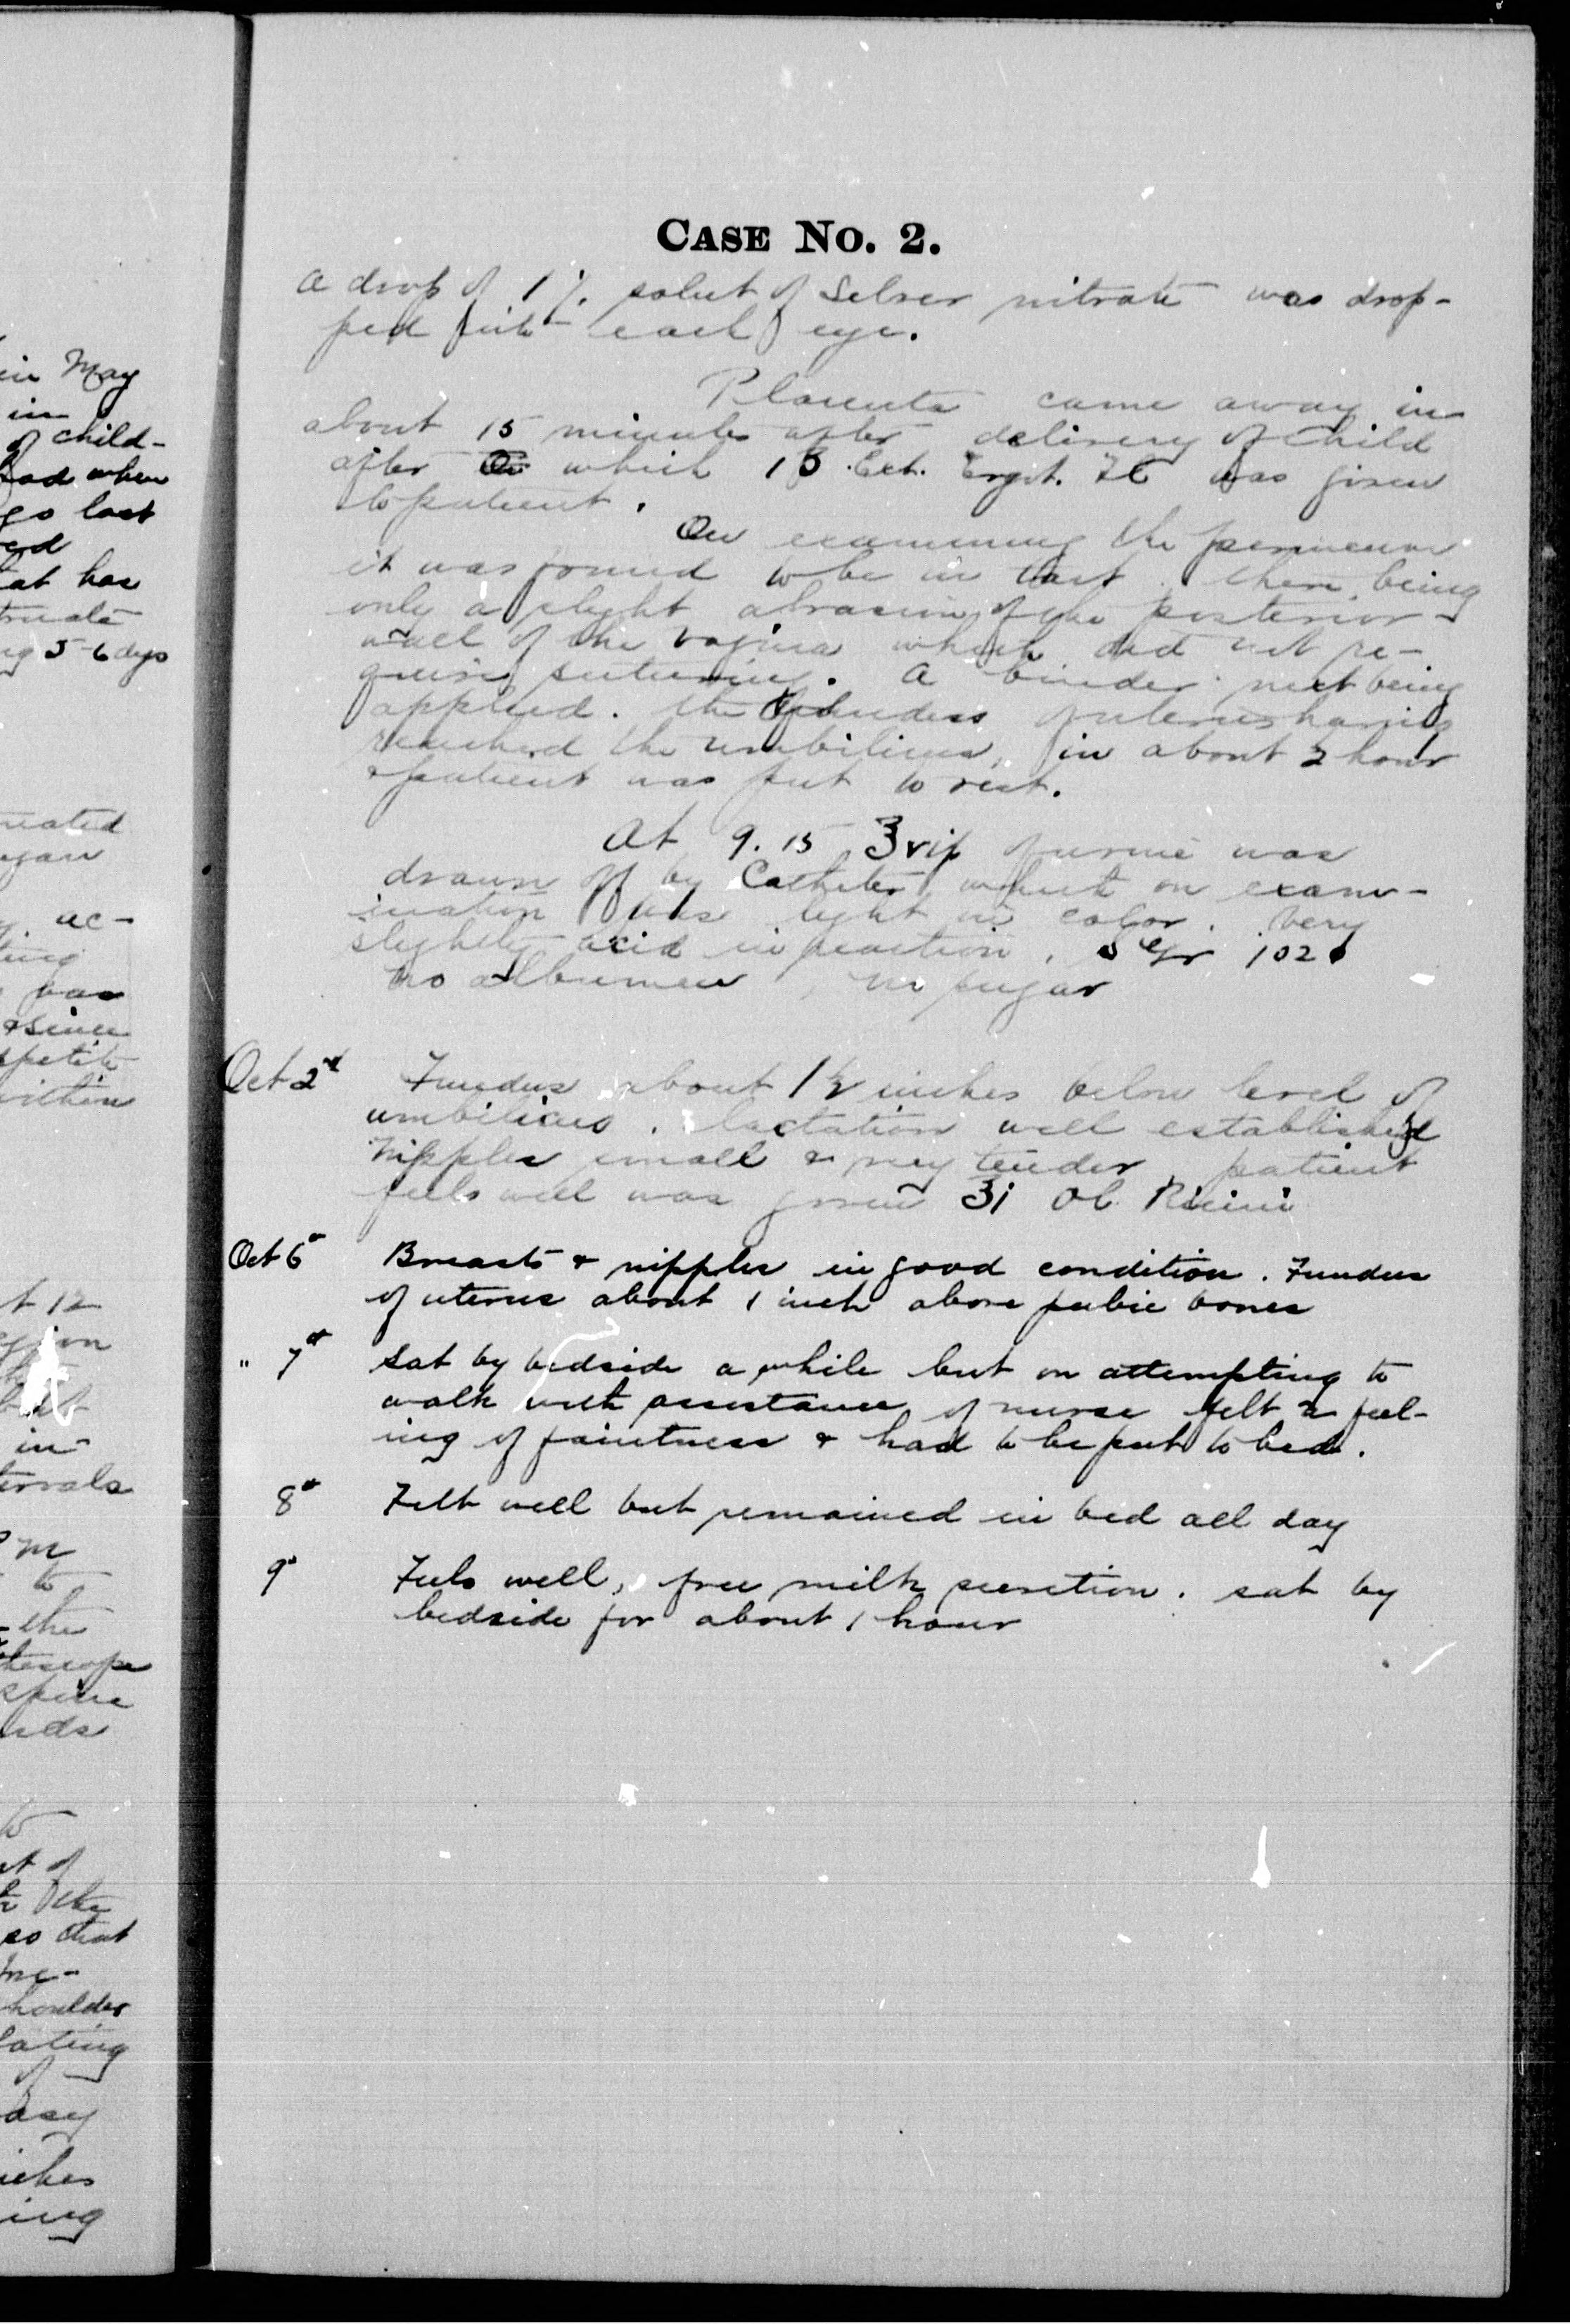 in May
in
of child-
had when
go last
ed
at has
truate
ng 5-6 days
eated
egan
ac-
ting
was
& since
ppetite
within
t 12
in
tervals
P M
to
the
thescope
spine
nds
to
t of
the
so that
me-
houlder
lating
of
easy
inches
ing
CASE NO. 2.
A drop of 1% solut of Silver nitrate was drop-
ped into each eye.
Placenta came away in
about 15 minutes after delivery of child
after which 1 Ʒ Ext. Ergot. Fl was given
to patient.
On examining the perineum
it was found to be in tact. there being
only a slight abrasion of the posterior
wall of the vagina which did not re-
quire suturing. A binder next being
applied. the fundus of uterus having
reached the umbilicus, in about 2 hour
patient was put to rest.
At 9.15 Ʒvij of urine was
drawn off by Catheter, which on exam-
ination was light in color. Very
slightly acid in reaction, S Gr 102
no albumen, no sugar
Oct 2nd Fundus about 1½ inches below level of
umbilicus. lactation well established
Nipples small & very tender, patient
feels well was given Ʒi Ol. Ricini
Oct 6" Breasts & nipples in good condition. Fundus
of uterus about 1 inch above pubic bones
" 7" Sat by bedside a while but on attempting to
walk with assistance of nurse felt a feel-
ing of faintness & had to be put to bed.
8" Felt well but remained in bed all day
9" Feels well, free milk secretion. sat by
bedside for about 1 hour